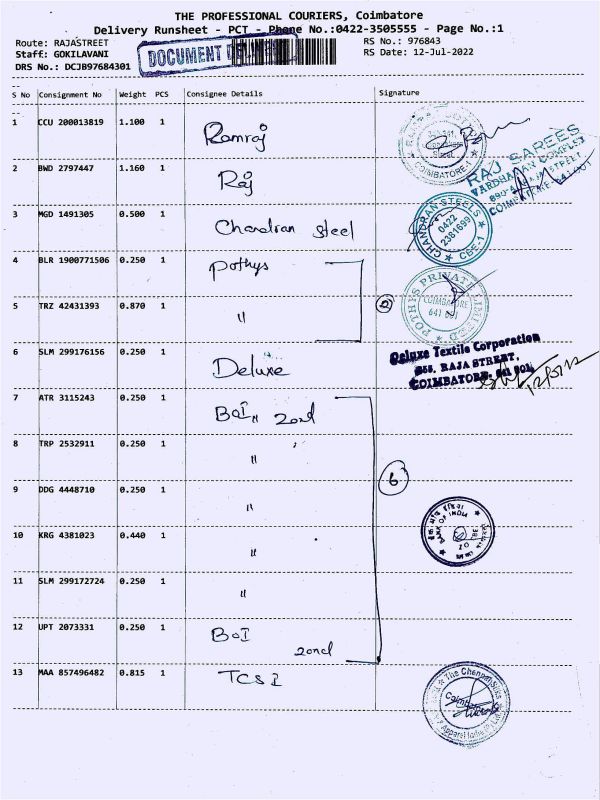 THE PROFESSIONAL COURIERS, Coimbatore
Delivery Runsheet - PCT - Phone No.:0422-3505555 - Page No.:1
Route: RAJASTREET RS No.: 976843
Staff: GOKILAVANI RS Date: 12-Jul-2022
DRS No.: DCJB97684301
DOCUMENT
S No Consignment No Weight PCS Consignee Details Signature
1 CCU 200013819 1.100 1 Ramraj
COIMBATORE-1
2 BWD 2797447 1.160 1 Raj
RAJ SAREES
VARDHAMAN COMPLEX
COIMBATORE-641 001
3 MGD 1491305 0.500 1 Chandran Steel
CHANDRAN STEELS
0422
2381699
CBE-1
4 BLR 1900771506 0.250 1 Pothys
5 TRZ 42431393 0.870 1 "
2
POTHYS PRIVATE LIMITED
COIMBATORE
641 001
6 SLM 299176156 0.250 1 Deluxe
Deluxe Textile Corporation
RAJA STREET,
COIMBATORE. 641 001.
7 ATR 3115243 0.250 1 BOI zond
8 TRP 2532911 0.250 1 "
9 DDG 4448710 0.250 1 "
6
10 KRG 4381023 0.440 1 "
BANK OF INDIA
11 SLM 299172724 0.250 1 "
12 UPT 2073331 0.250 1 BOI zond
13 MAA 857496482 0.815 1 TCSI
The Chennai Silks
Coimbatore